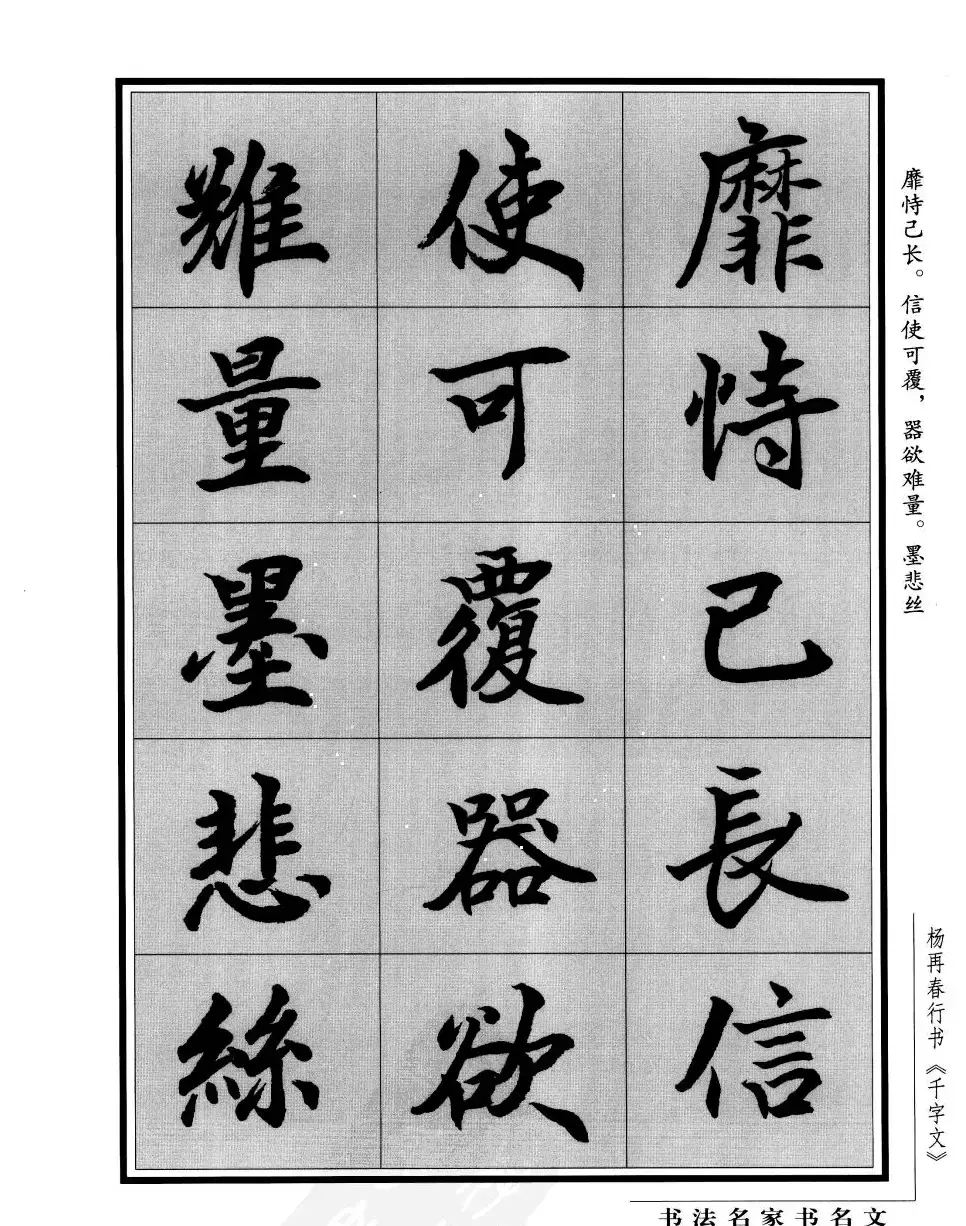 靡恃己長信
使可覆器欲
難量墨悲絲
靡恃己长。信使可覆，器欲难量。墨悲丝
杨再春行书《千字文》
书法名家书名文